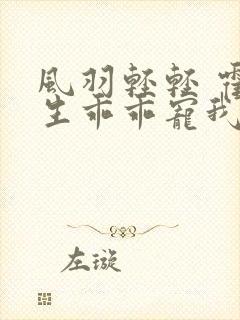 風羽輕輕 霍
生乖乖寵我
左漩